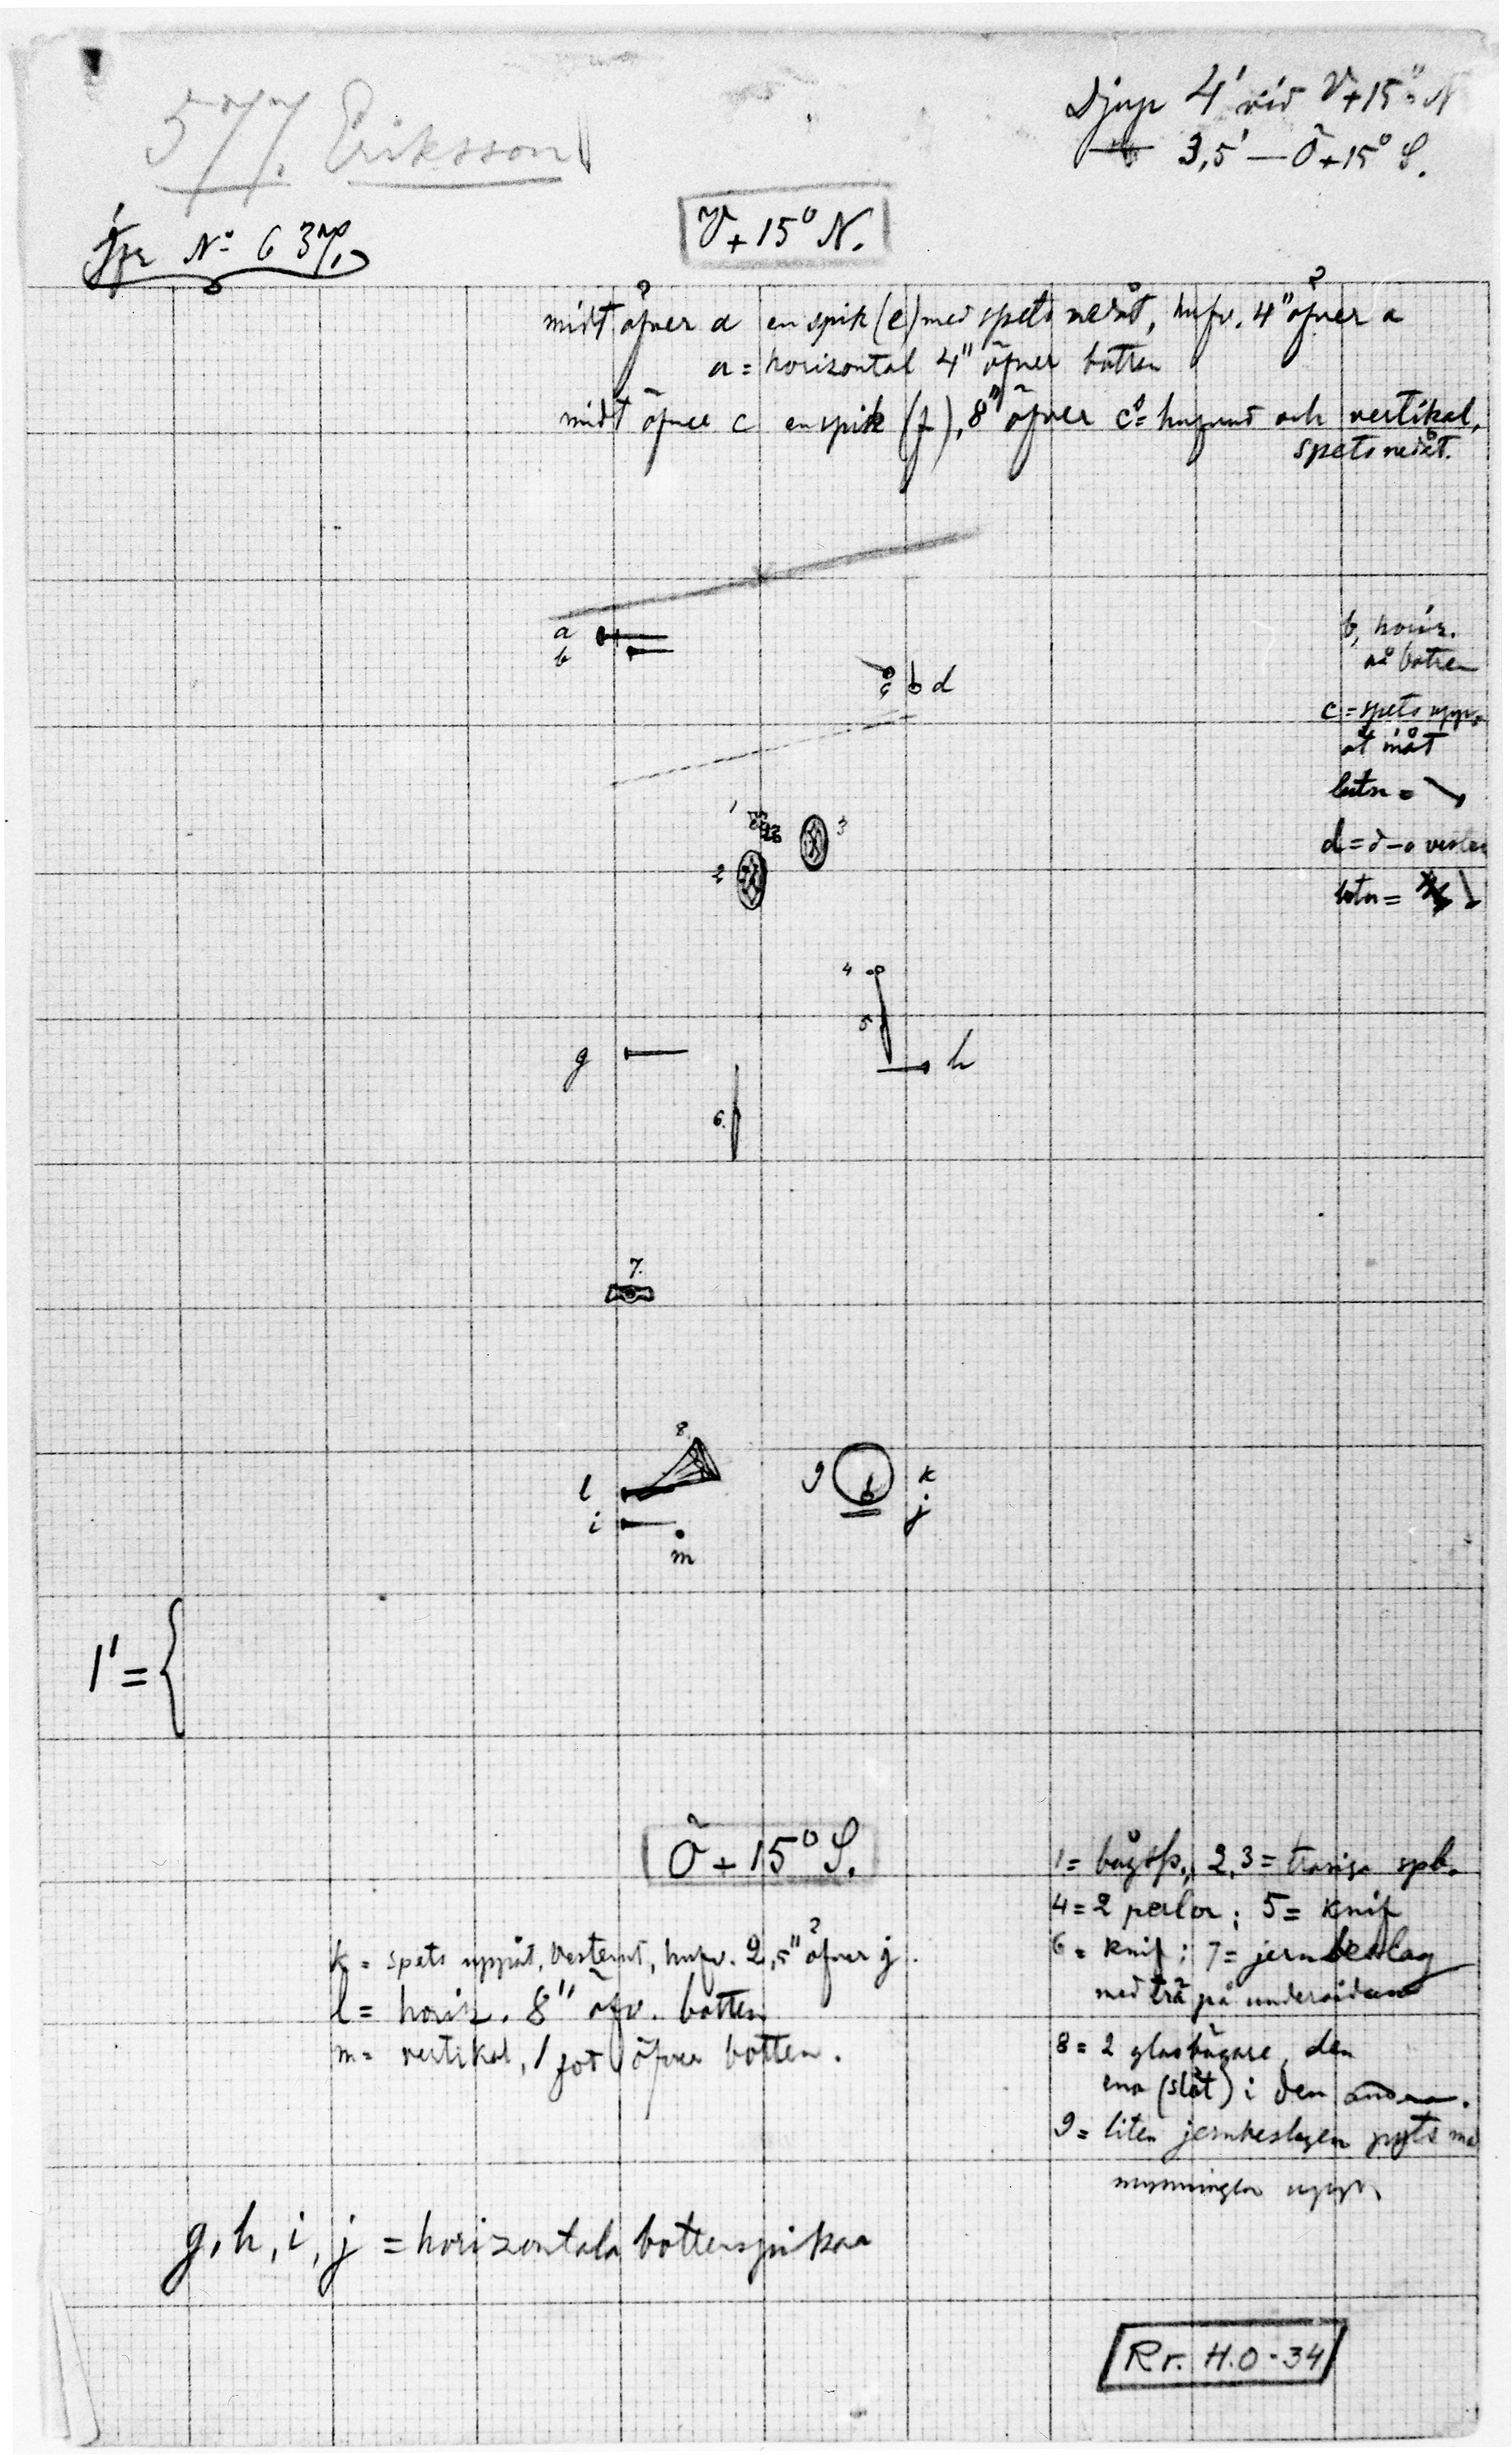 577. Eriksson
Djup 4' vid V+15° N
3,5' — Ö+15° S.
Jfr No 637.
V+15° N.
midt öfver a en spik (e) med spets nedåt, hufv. 4" öfver a
a = horizontal 4" öfver botten
midt öfver c en spik (f), 8" öfver c = hufvud och vertikal,
spets nedåt.
a
b
c d
b, horiz.
på botten
c = spets upp-
åt inåt
lutn =
d = d-o vester
lutn =
1
2
3
4
5
g
h
6.
7.
8.
l
i
m
9
k
j
1' = {
Ö+15° S.
1 = bågsp., 2,3 = trasiga spb.
4 = 2 perlor; 5 = knif
6 = knif; 7 = jernbeslag
med trä på undersidan
8 = 2 glasbägare, den
ena (slät) i den andra.
9 = liten jernbeslagen pyts med
mynningen upp
k = spets uppåt, vesterut, hufv. 2,5" öfver j.
l = horiz. 8" öfv. botten
m = vertikal, 1 fot öfver botten.
g, h, i, j = horizontala bottenspikar
Rr. H.O-34